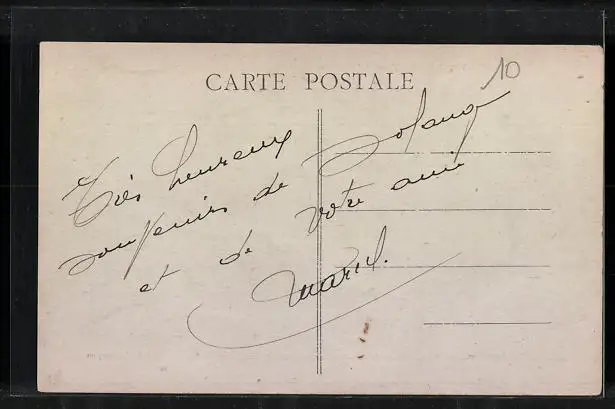 CARTE POSTALE
10
Très heureux
souvenirs de Solange
et de votre amie
Marcel.